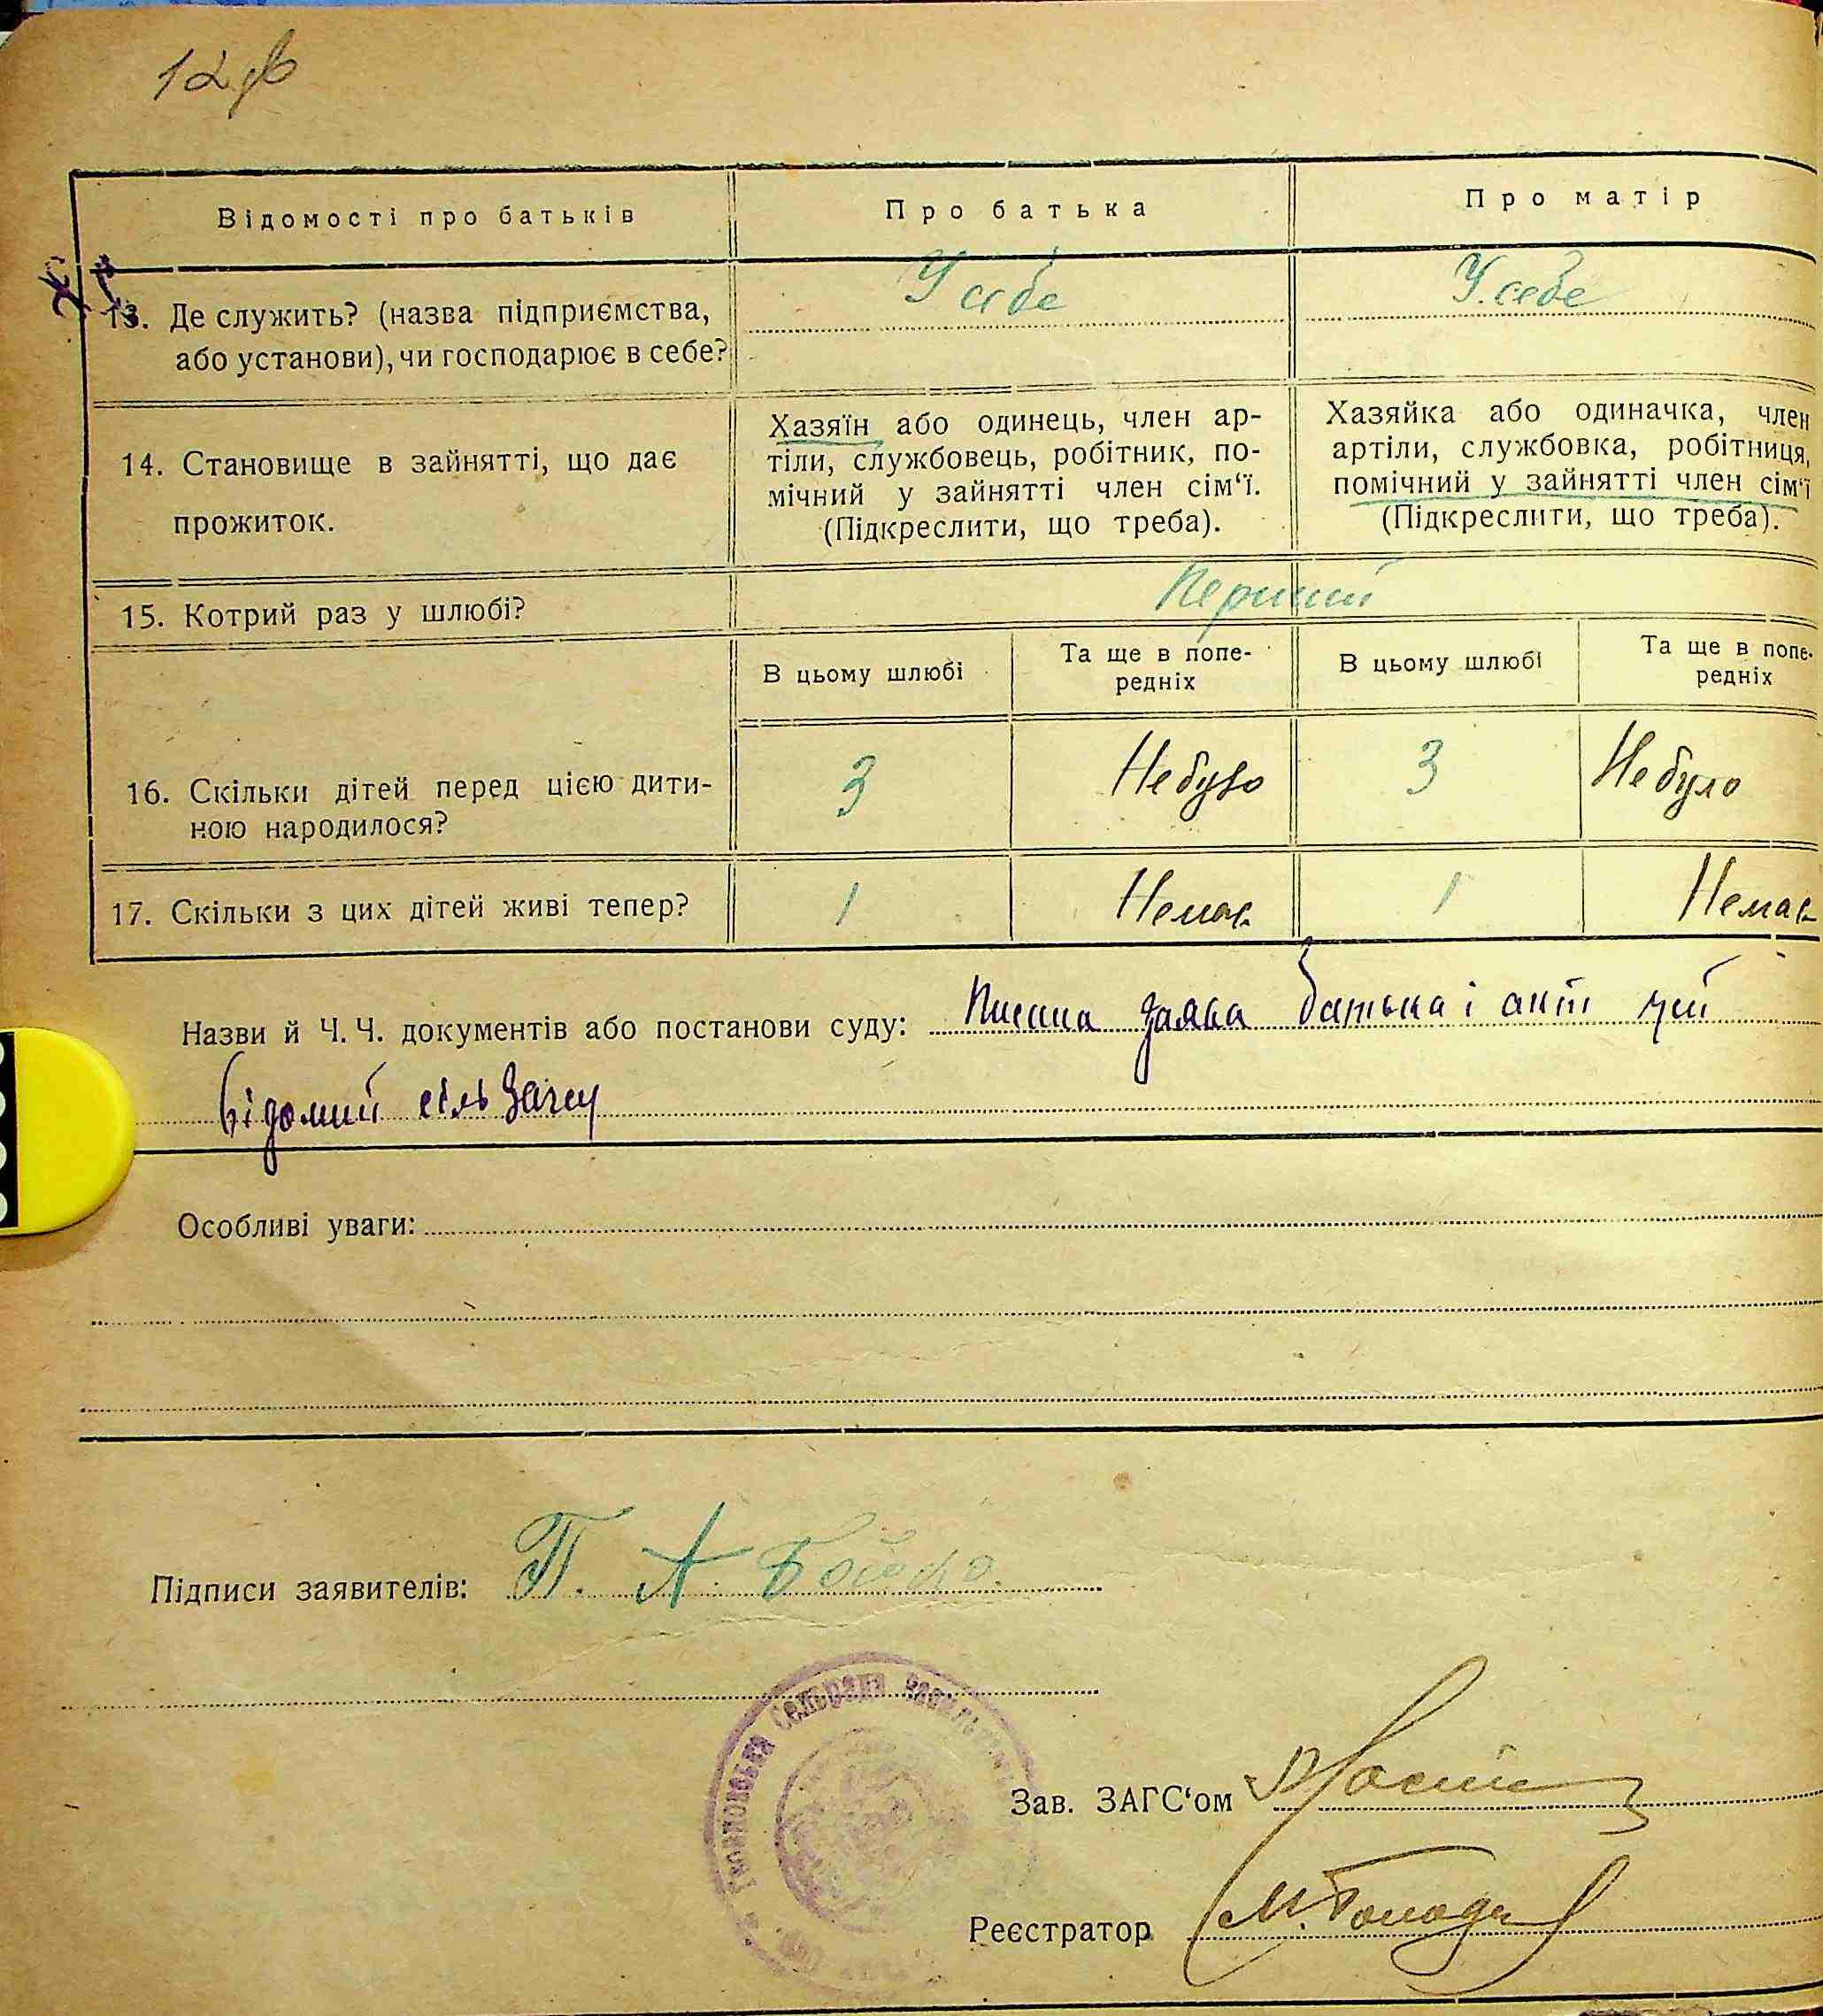 12
Відомості про батьків
Про батька
Про матір
13. Де служить? (назва підприємства,
або установи), чи господарює в себе?
У себе
У себе
14. Становище в зайнятті, що дає
прожиток.
Хазяїн або одинець, член ар-
тіли, службовець, робітник, по-
мічний у зайнятті член сім‘ї.
(Підкреслити, що треба).
Хазяйка або одиначка, член
артіли, службовка, робітниця,
помічний у зайнятті член сім‘ї
(Підкреслити, що треба).
15. Котрий раз у шлюбі?
Перший
В цьому шлюбі
Та ще в попе-
редніх
В цьому шлюбі
Та ще в попе-
редніх
16. Скільки дітей перед цією дити-
ною народилося?
3
Небуло
3
Небуло
17. Скільки з цих дітей живі тепер?
1
Немає
1
Немає
Назви й Ч. Ч. документів або постанови суду: заява батька і акт цей
відомий
Особливі уваги:
Підписи заявителів: П. А. Бойко.
Сельрада
Зав. ЗАГС‘ом
Реєстратор М.